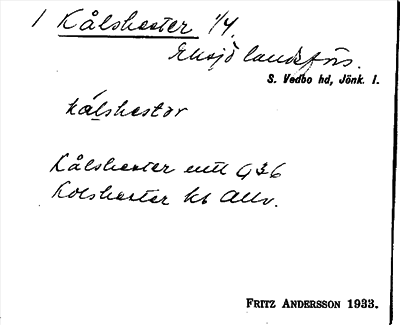 1 Kålshester 1/4.
Eksjö landsförs.
S. Vedbo hd, Jönk. l.
kálshestər
Kålshester
Kolshester
FRITZ ANDERSSON 1933.